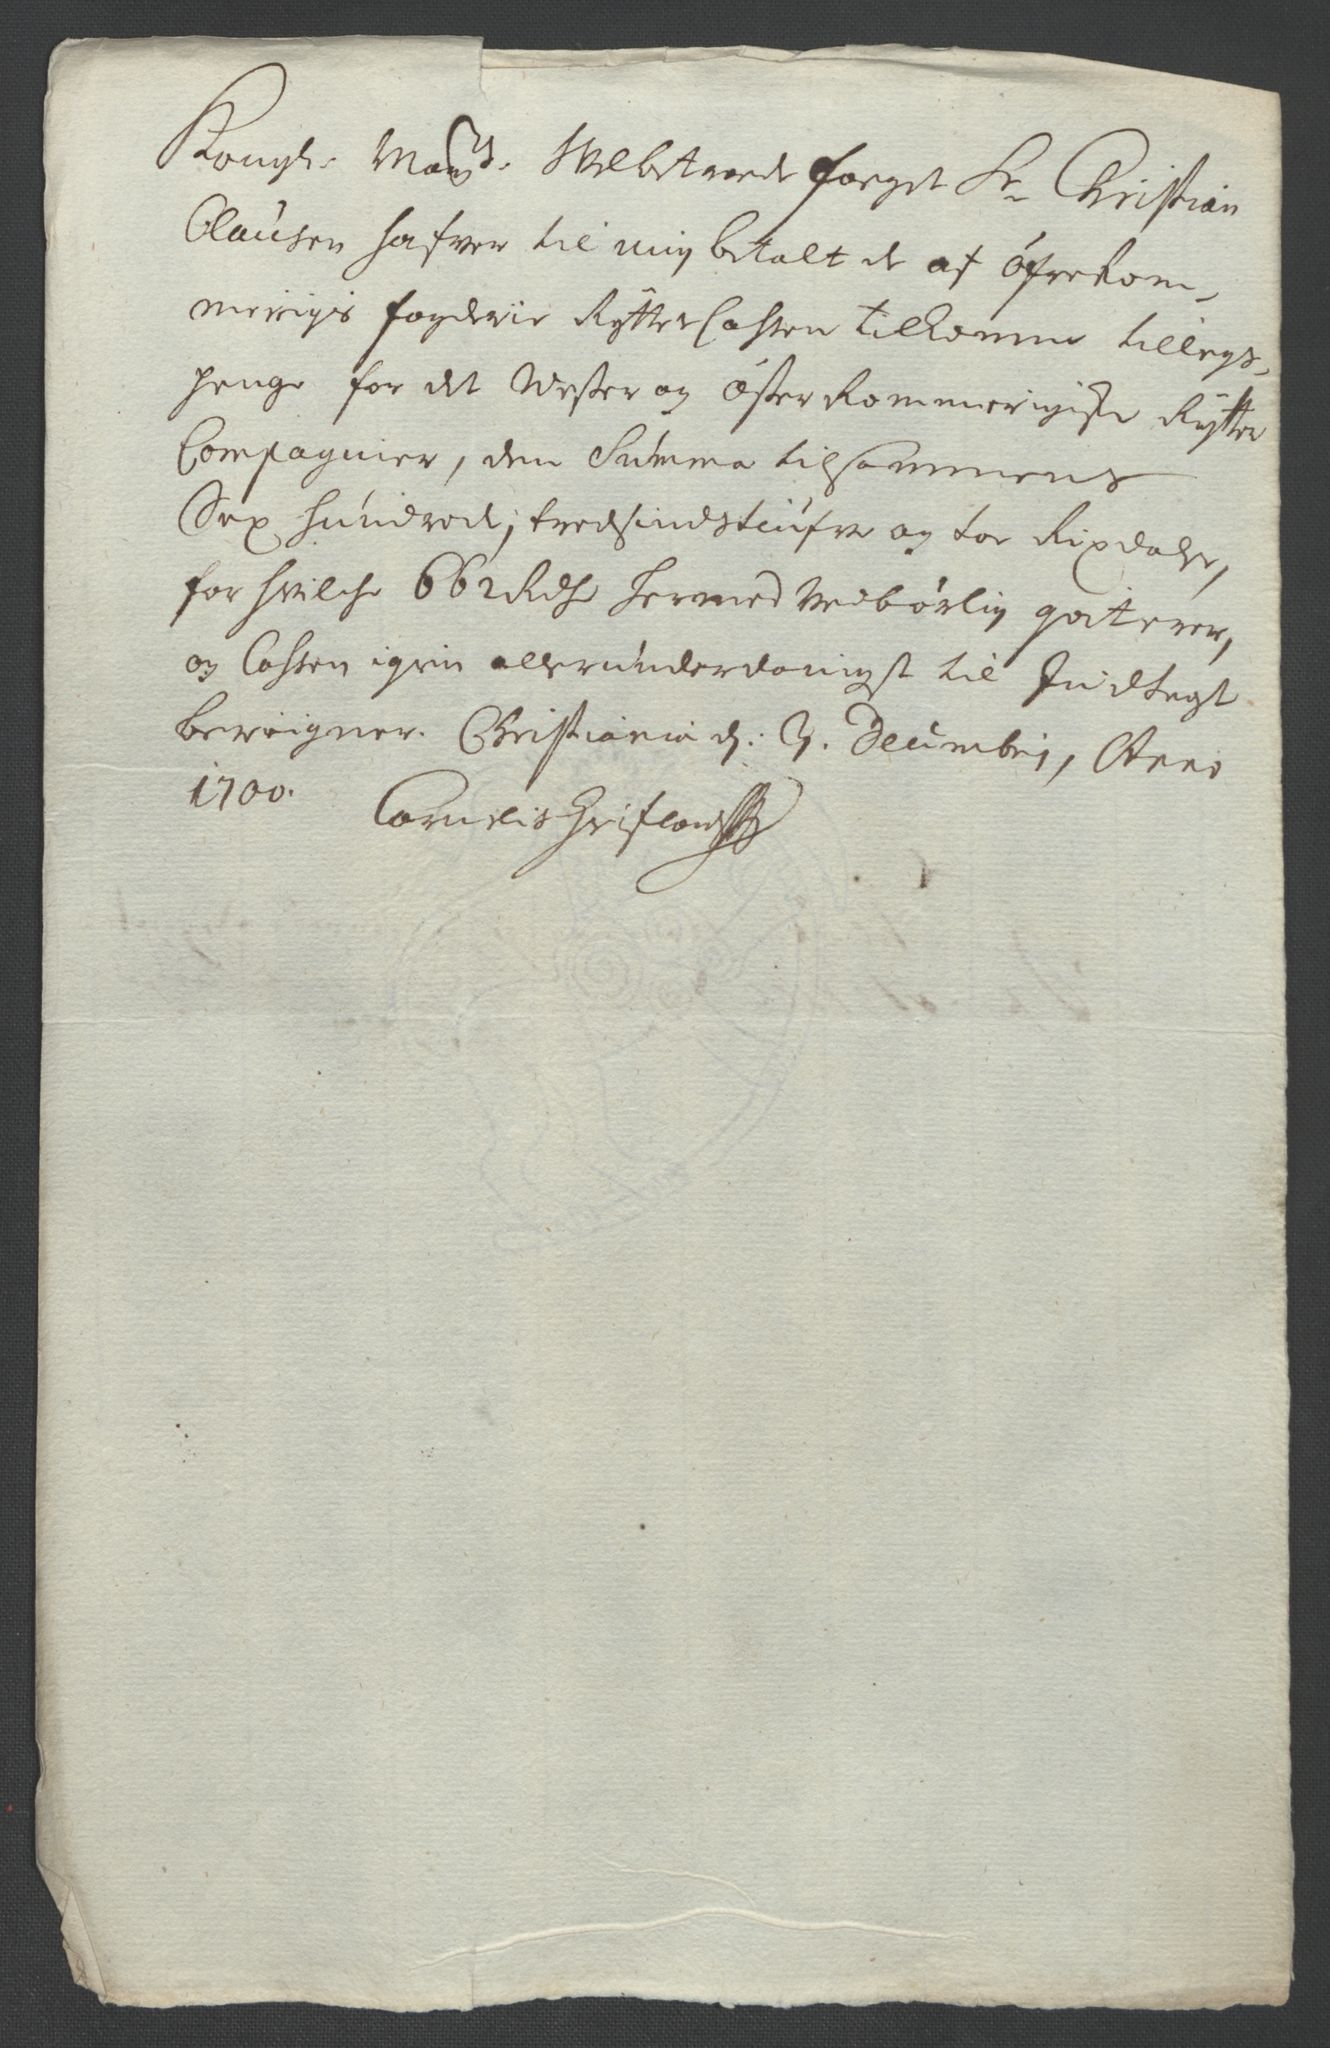 Kongl: Mayts: Welbetroede foeget Sr Christian
Clausen hafver til mig betalt de af Öfre Rom-
merigis fogderie Rytter Cassen tilkomne tillegs-
penge for det Wester og Öster Rommerigiske Rytter
Compagnier, den Summa tilsammens
Sex hundrede, tredsindstiufve og toe Rixdaler,
for hvilche 662 Rdr hermed wedbörlig qviterer,
og Cassen igien allerunderdanigst til Indtegt
bereigner. Christiania d: 3. Decembrj, Anno
1700.
Cornelis